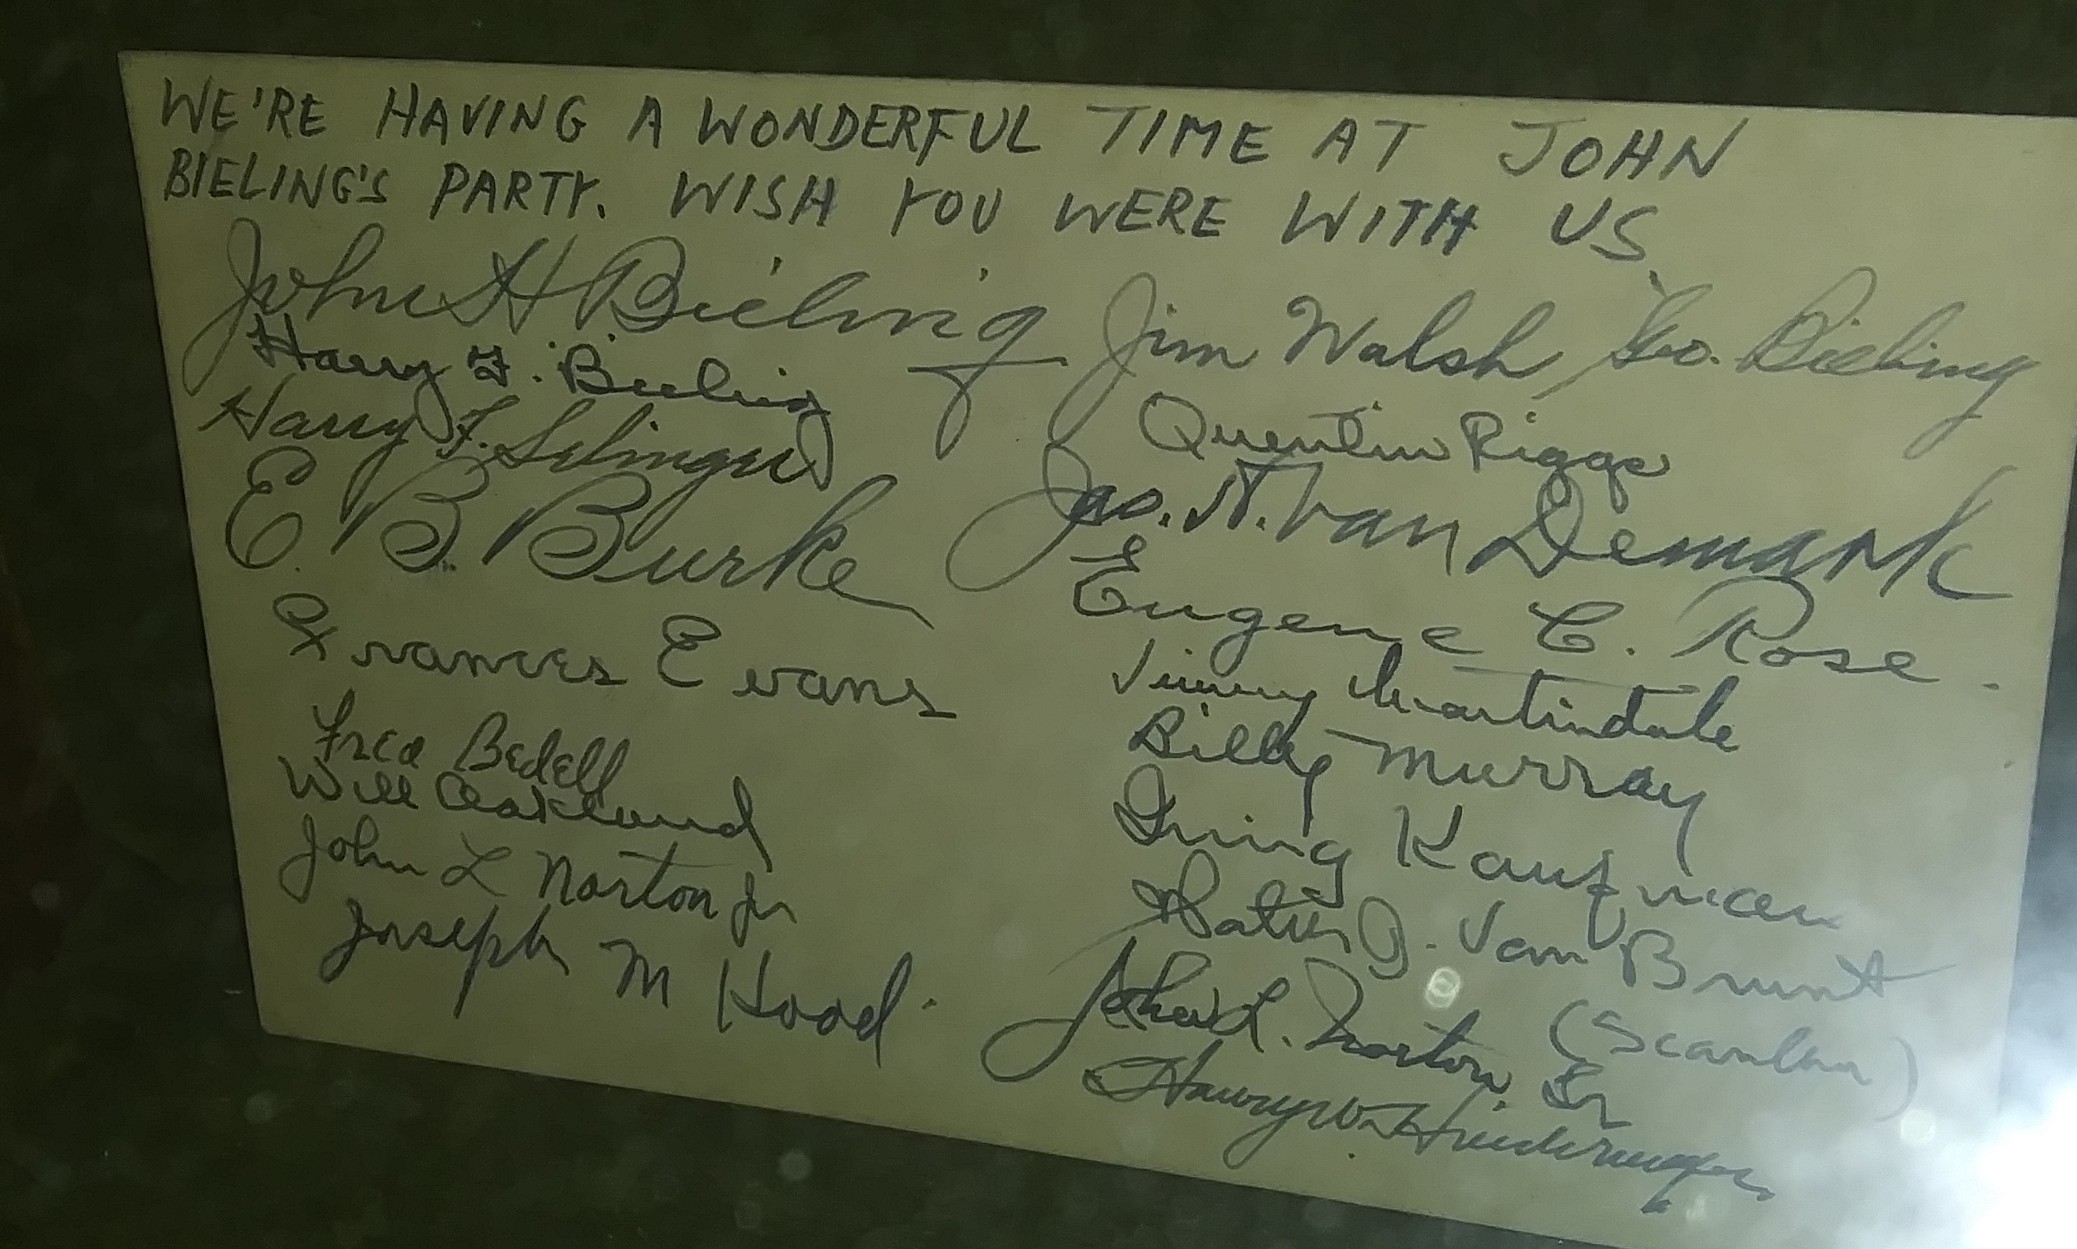 WE'RE HAVING A WONDERFUL TIME AT JOHN
BIELING'S PARTY. WISH YOU WERE WITH US
John H Bieling
Jim Walsh
Geo. Bieling
Harry F. Bieling
Quentin Riggs
Harry F.
E. B. Burke
Jas. N. Van Demark
Eugene C. Rose
Frances Evans
Jimmy Martindale
Fred Bedell
Billy Murray
Will Oakland
Irving Kaufman
John L Norton Jr
J. Van Brunt
(Scanlan)
Joseph M Hood.
John L. Norton Sr
Harry W.